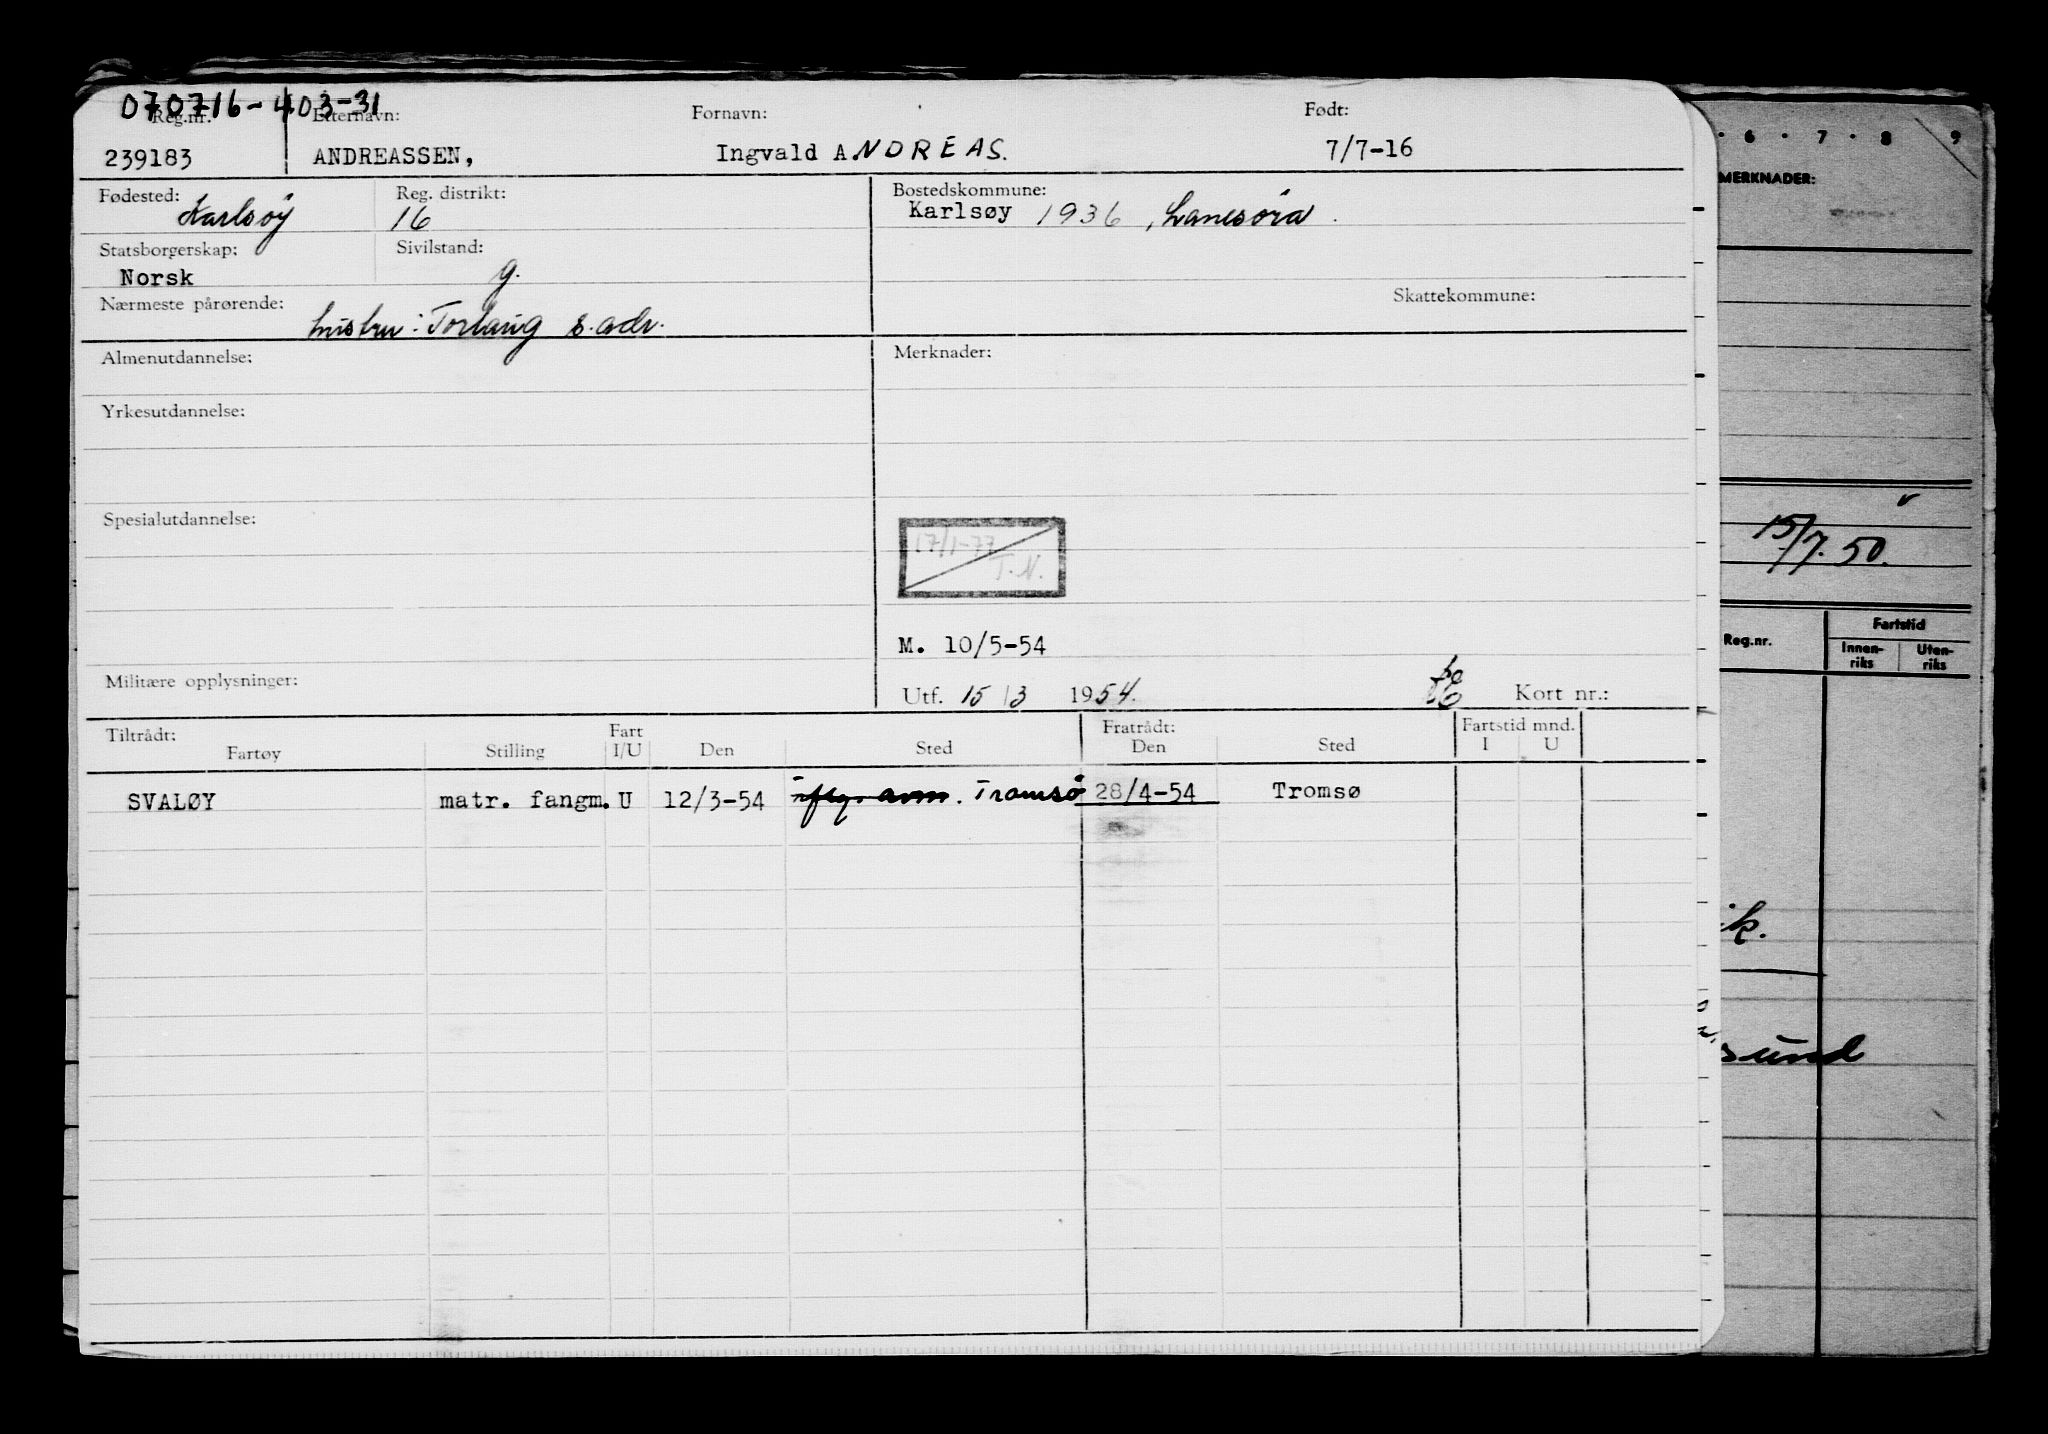 070716-403-31
Reg.nr. Etternavn: Fornavn: Født:
239183 ANDREASSEN, Ingvald ANDREAS. 7/7-16
Fødested: Reg. distrikt: Bostedskommune:
Karlsøy 16 Karlsøy 1936,
Statsborgerskap: Sivilstand:
Norsk g.
Nærmeste pårørende: Skattekommune:
hustru: Torlaug s. adr.
Almenutdannelse: Merknader:
Yrkesutdannelse:
Spesialutdannelse:
17/1-77
T.N.
M. 10/5-54
Militære opplysninger: Utf. 15/3 1954. Kort nr.:
Tiltrådt: Fart Fratrådt: Fartstid mnd.
Fartøy Stilling I/U Den Sted Den Sted I U
SVALØY matr. fangm. U 12/3-54 Tromsø 28/4-54 Tromsø
6 . 7 . 8 9
MERKNADER:
15/7.50.
Reg.nr. Fartstid
Innen-riks Uten-riks
ik.
sund